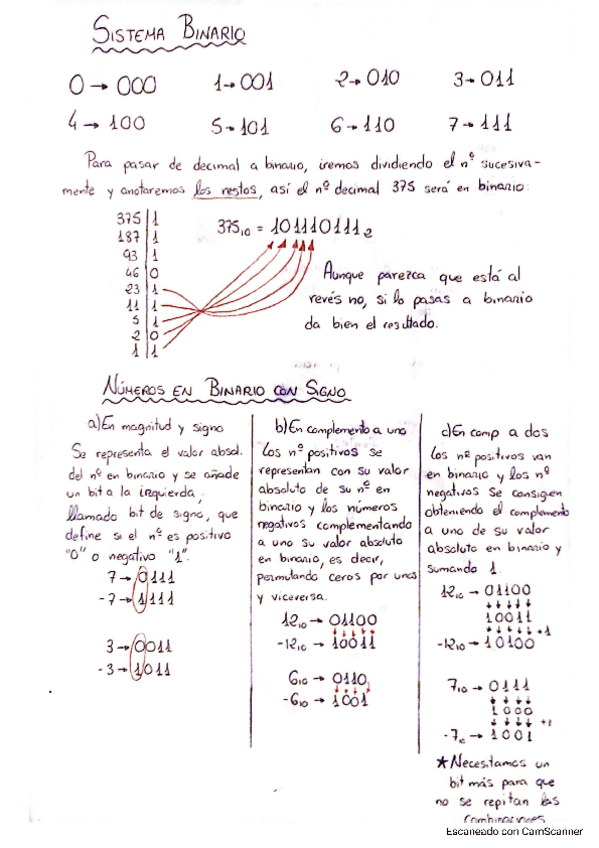 SISTEMA BINARIO
0 → 000 1 → 001 2 → 010 3 → 011
4 → 100 5 → 101 6 → 110 7 → 111
Para pasar de decimal a binario, iremos dividiendo el nº sucesiva-
mente y anotaremos los restos, así el nº decimal 375 será en binario:
375 | 1
187 | 1
93 | 1
46 | 0
23 | 1
11 | 1
5 | 1
2 | 0
1 | 1
375₁₀ = 101110111₂
Aunque parezca que está al
revés no, si lo pasas a binario
da bien el resultado.
NÚMEROS EN BINARIO CON SIGNO
a) En magnitud y signo
Se representa el valor absol.
del nº en binario y se añade
un bit a la izquierda,
llamado bit de signo, que
define si el nº es positivo
"0" o negativo "1".
7 → 0111
-7 → 1111
3 → 0011
-3 → 1011
b) En complemento a uno
Los nº positivos se
representan con su valor
absoluto de su nº en
binario y los números
negativos complementando
a uno su valor absoluto
en binario, es decir,
permutando ceros por unos
y viceversa.
12₁₀ → 01100
-12₁₀ → 10011
6₁₀ → 0110
-6₁₀ → 1001
c) En comp a dos
Los nº positivos van
en binario y los nº
negativos se consiguen
obteniendo el complemento
a uno de su valor
absoluto en binario y
sumando 1.
12₁₀ → 01100
10011
+1
-12₁₀ → 10100
7₁₀ → 0111
1000
+1
-7₁₀ → 1001
* Necesitamos un
bit más para que
no se repitan las
combinaciones
Escaneado con CamScanner